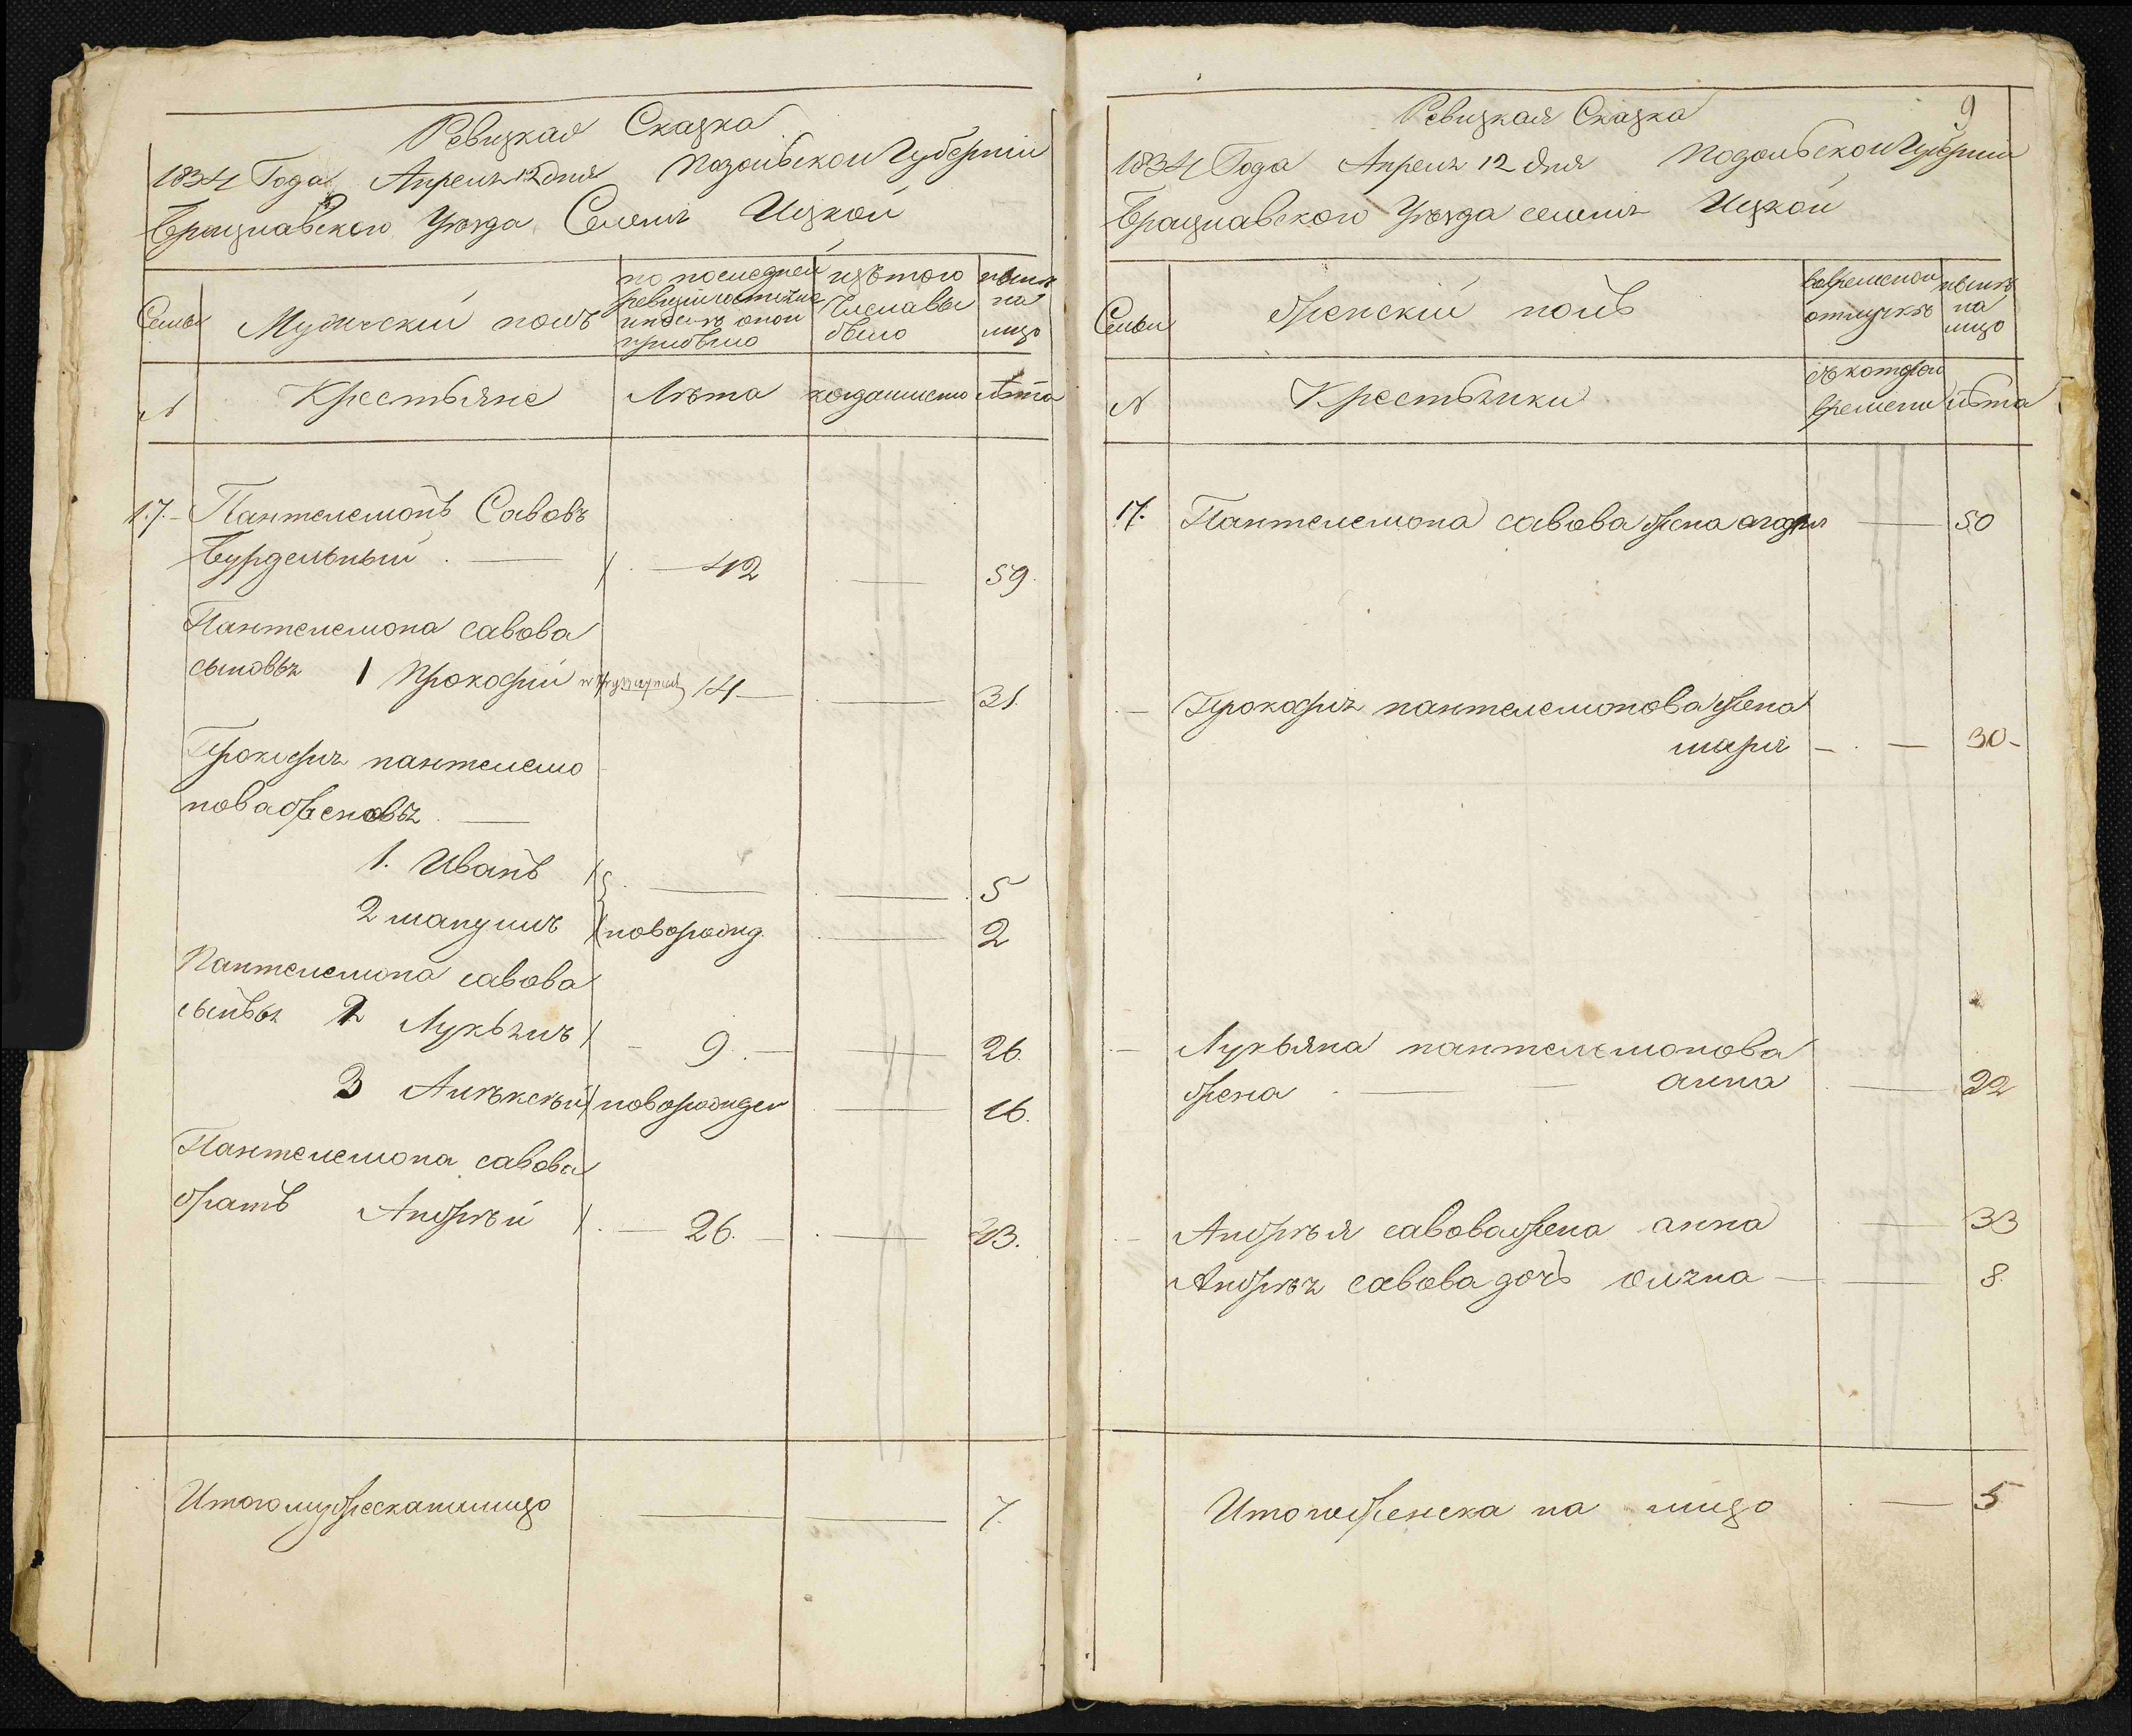 Ревизкая Сказка
1834 Года Апреля 12 дня Подольской Губерніи
Брацлавского Уѣзда Селенія Ицкой
Семьи
Мужескій полъ
по последней
ревизіи состояло
и после оной
прибыло
изъ того
числа вы
было
нынѣ
на
лицо
N
Крестьяне
Лѣта
когда именно
лѣта
17. Пантелемонъ Савовъ
Бурдельный 42 59
Пантелемона савова
сыновья 1 Прокофій 14 31
Прокофия пантелемо
нова сыновья
1. Иванъ 5
2 новорожд. 2
Пантелемона савова
сыновья 2 Лукьянъ 9 26.
3 Алѣксѣй новорожден 16.
Пантелемона савова
братъ Андрѣй 26. 43.
Итого мужеска на лицо 7.
9
Ревизкая Сказка
1834 Года Апреля 12 дня Подольской Губерніи
Брацлавского Уѣзда селенія Ицкой
Семьи
Женскій полъ
во временной
отлучкѣ
нынѣ
на
лицо
N
Крестьянки
съ которого
времени
лѣта
17. Пантелемона савова жена агафия 50
Прокофия пантелемонова жена
мария 30
Лукьяна пантелемонова
жена анна 22
Андрѣя савова жена анна 33
Андрѣя савова дочь 8.
Итого женска на лицо 5